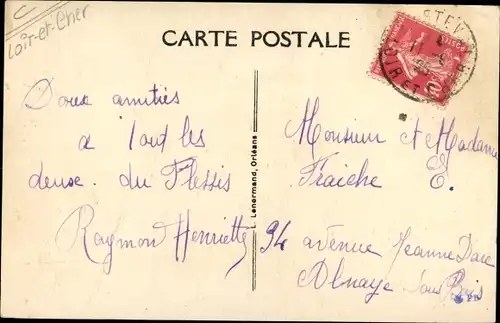 Loir-et-Cher
CARTE POSTALE
LOIR ET
Doux amitiés
a tout les
deuse. du Plessis
Raymon Henriette
L. Lenormand, Orléans
Monsieur et Madame
Fraiche E.
94 avenue Jeanne Darc
Alnaye sous Bois